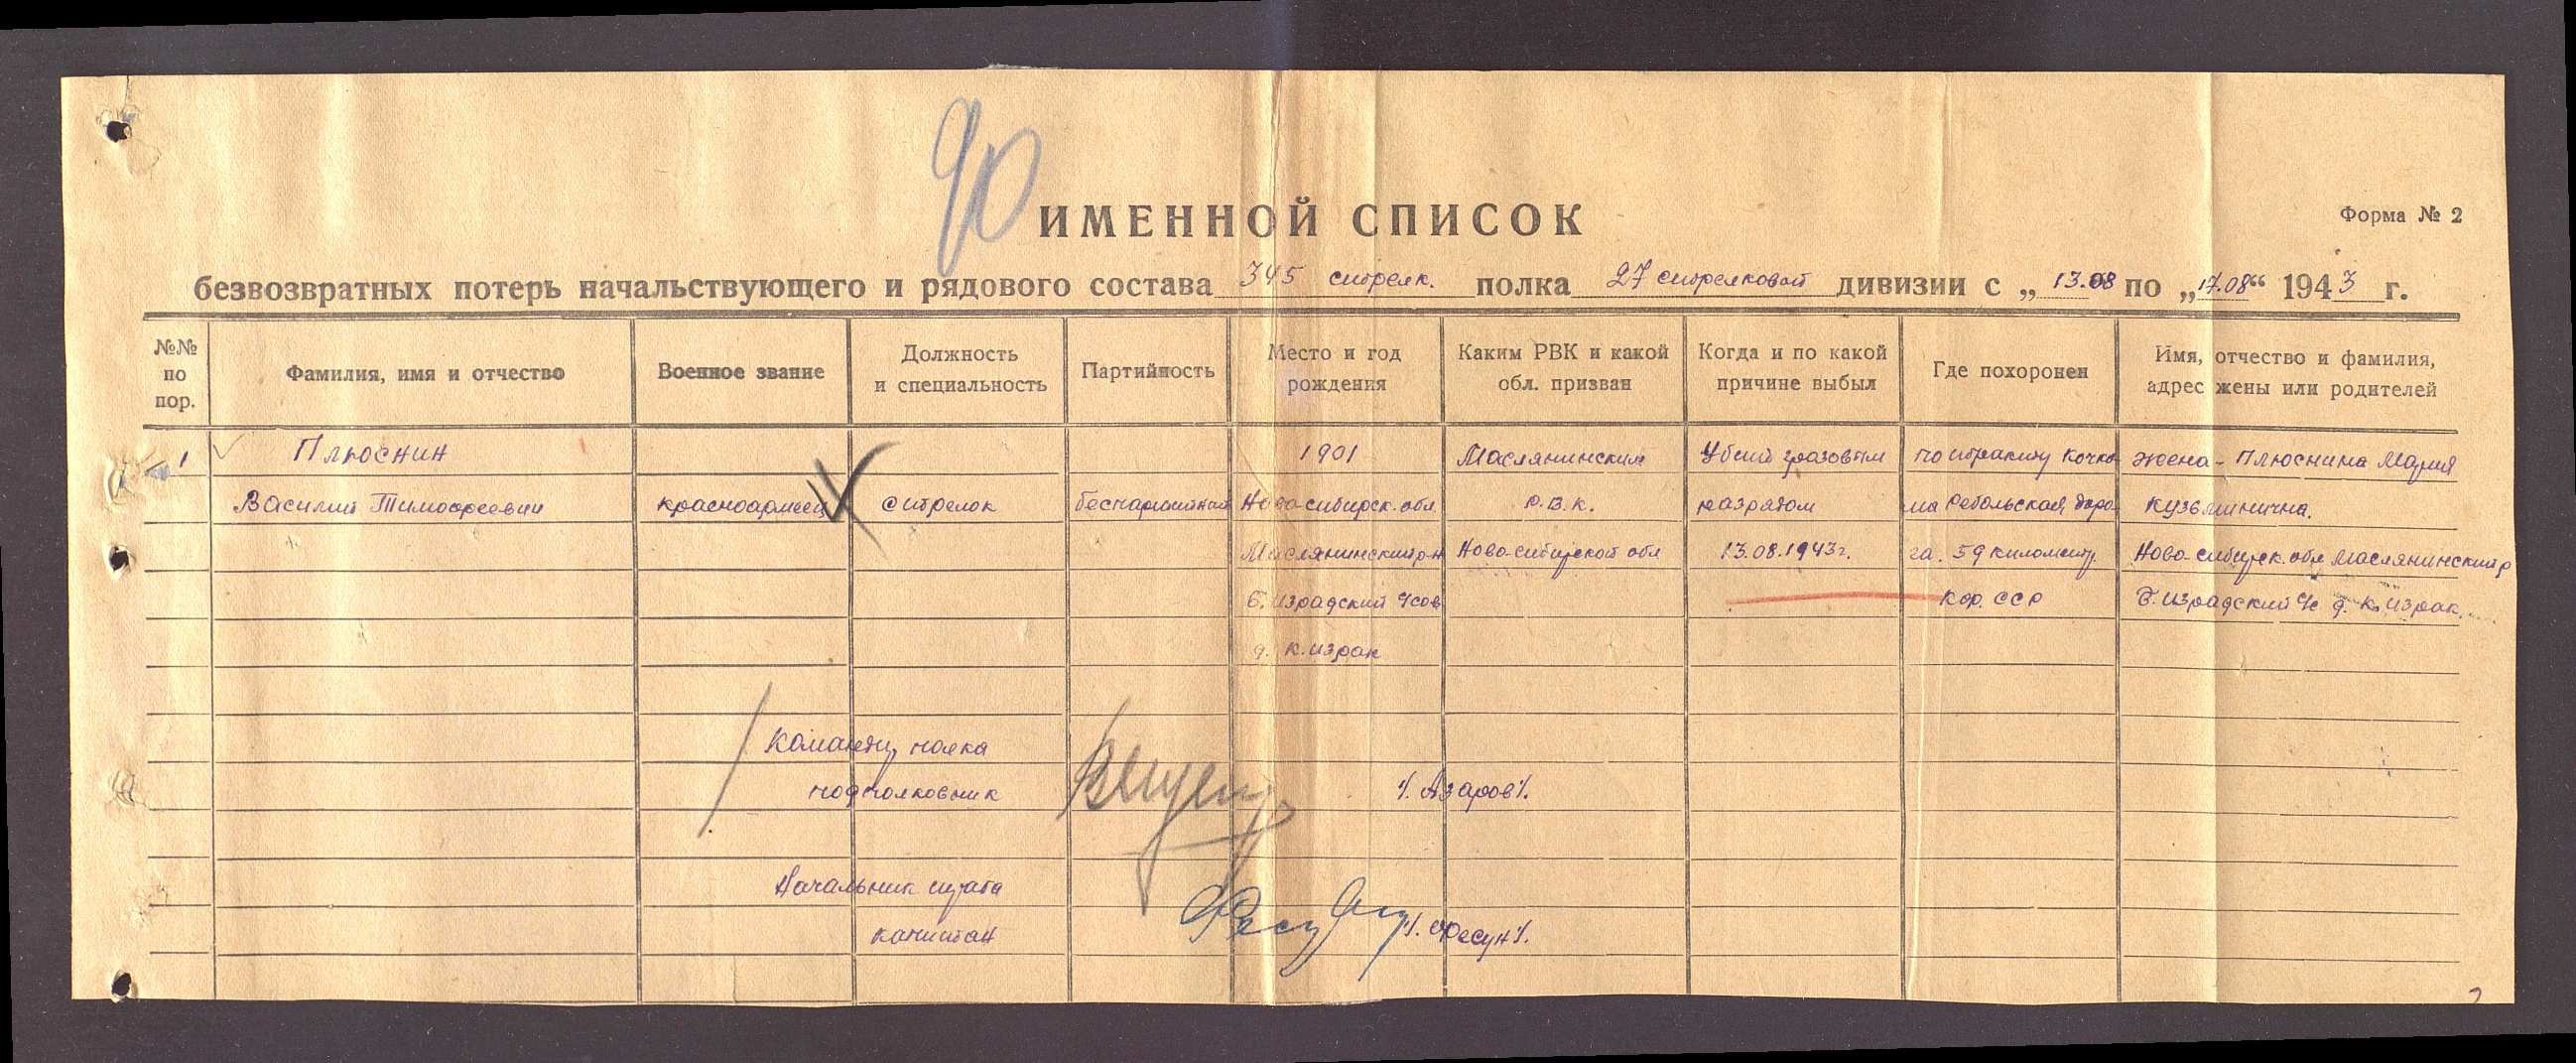 90
ИМЕННОЙ СПИСОК
Форма № 2
безвозвратных потерь начальствующего и рядового состава 345 стрелк. полка 27 стрелковой дивизии с „13.08 по „17.08“ 1943 г.
№№ по пор.
Фамилия, имя и отчество
Военное звание
Должность и специальность
Партийность
Место и год рождения
Каким РВК и какой обл. призван
Когда и по какой причине выбыл
Где похоронен
Имя, отчество и фамилия, адрес жены или родителей
1 Плюснин 1901 Маслянинским Убит грозовым по тракту Кочко жена - Плюснина Мария
Василий Тимофеевич красноармеец стрелок беспартийный Ново-сибирск. обл. Р.В.К. разрядом ма Ребольская доро Кузьминична.
Маслянинский р-н Ново-сибирской обл 13.08.1943 г. га. 59 километр. Ново-сибирск. обл Маслянинский р
Б. Изракский с К.Ф. ССР Б. Изракский с д. К. Израк.
д. К. Израк
Командир полка
подполковник /. Азаров /.
Начальник штаба
капитан /. Фесун /.